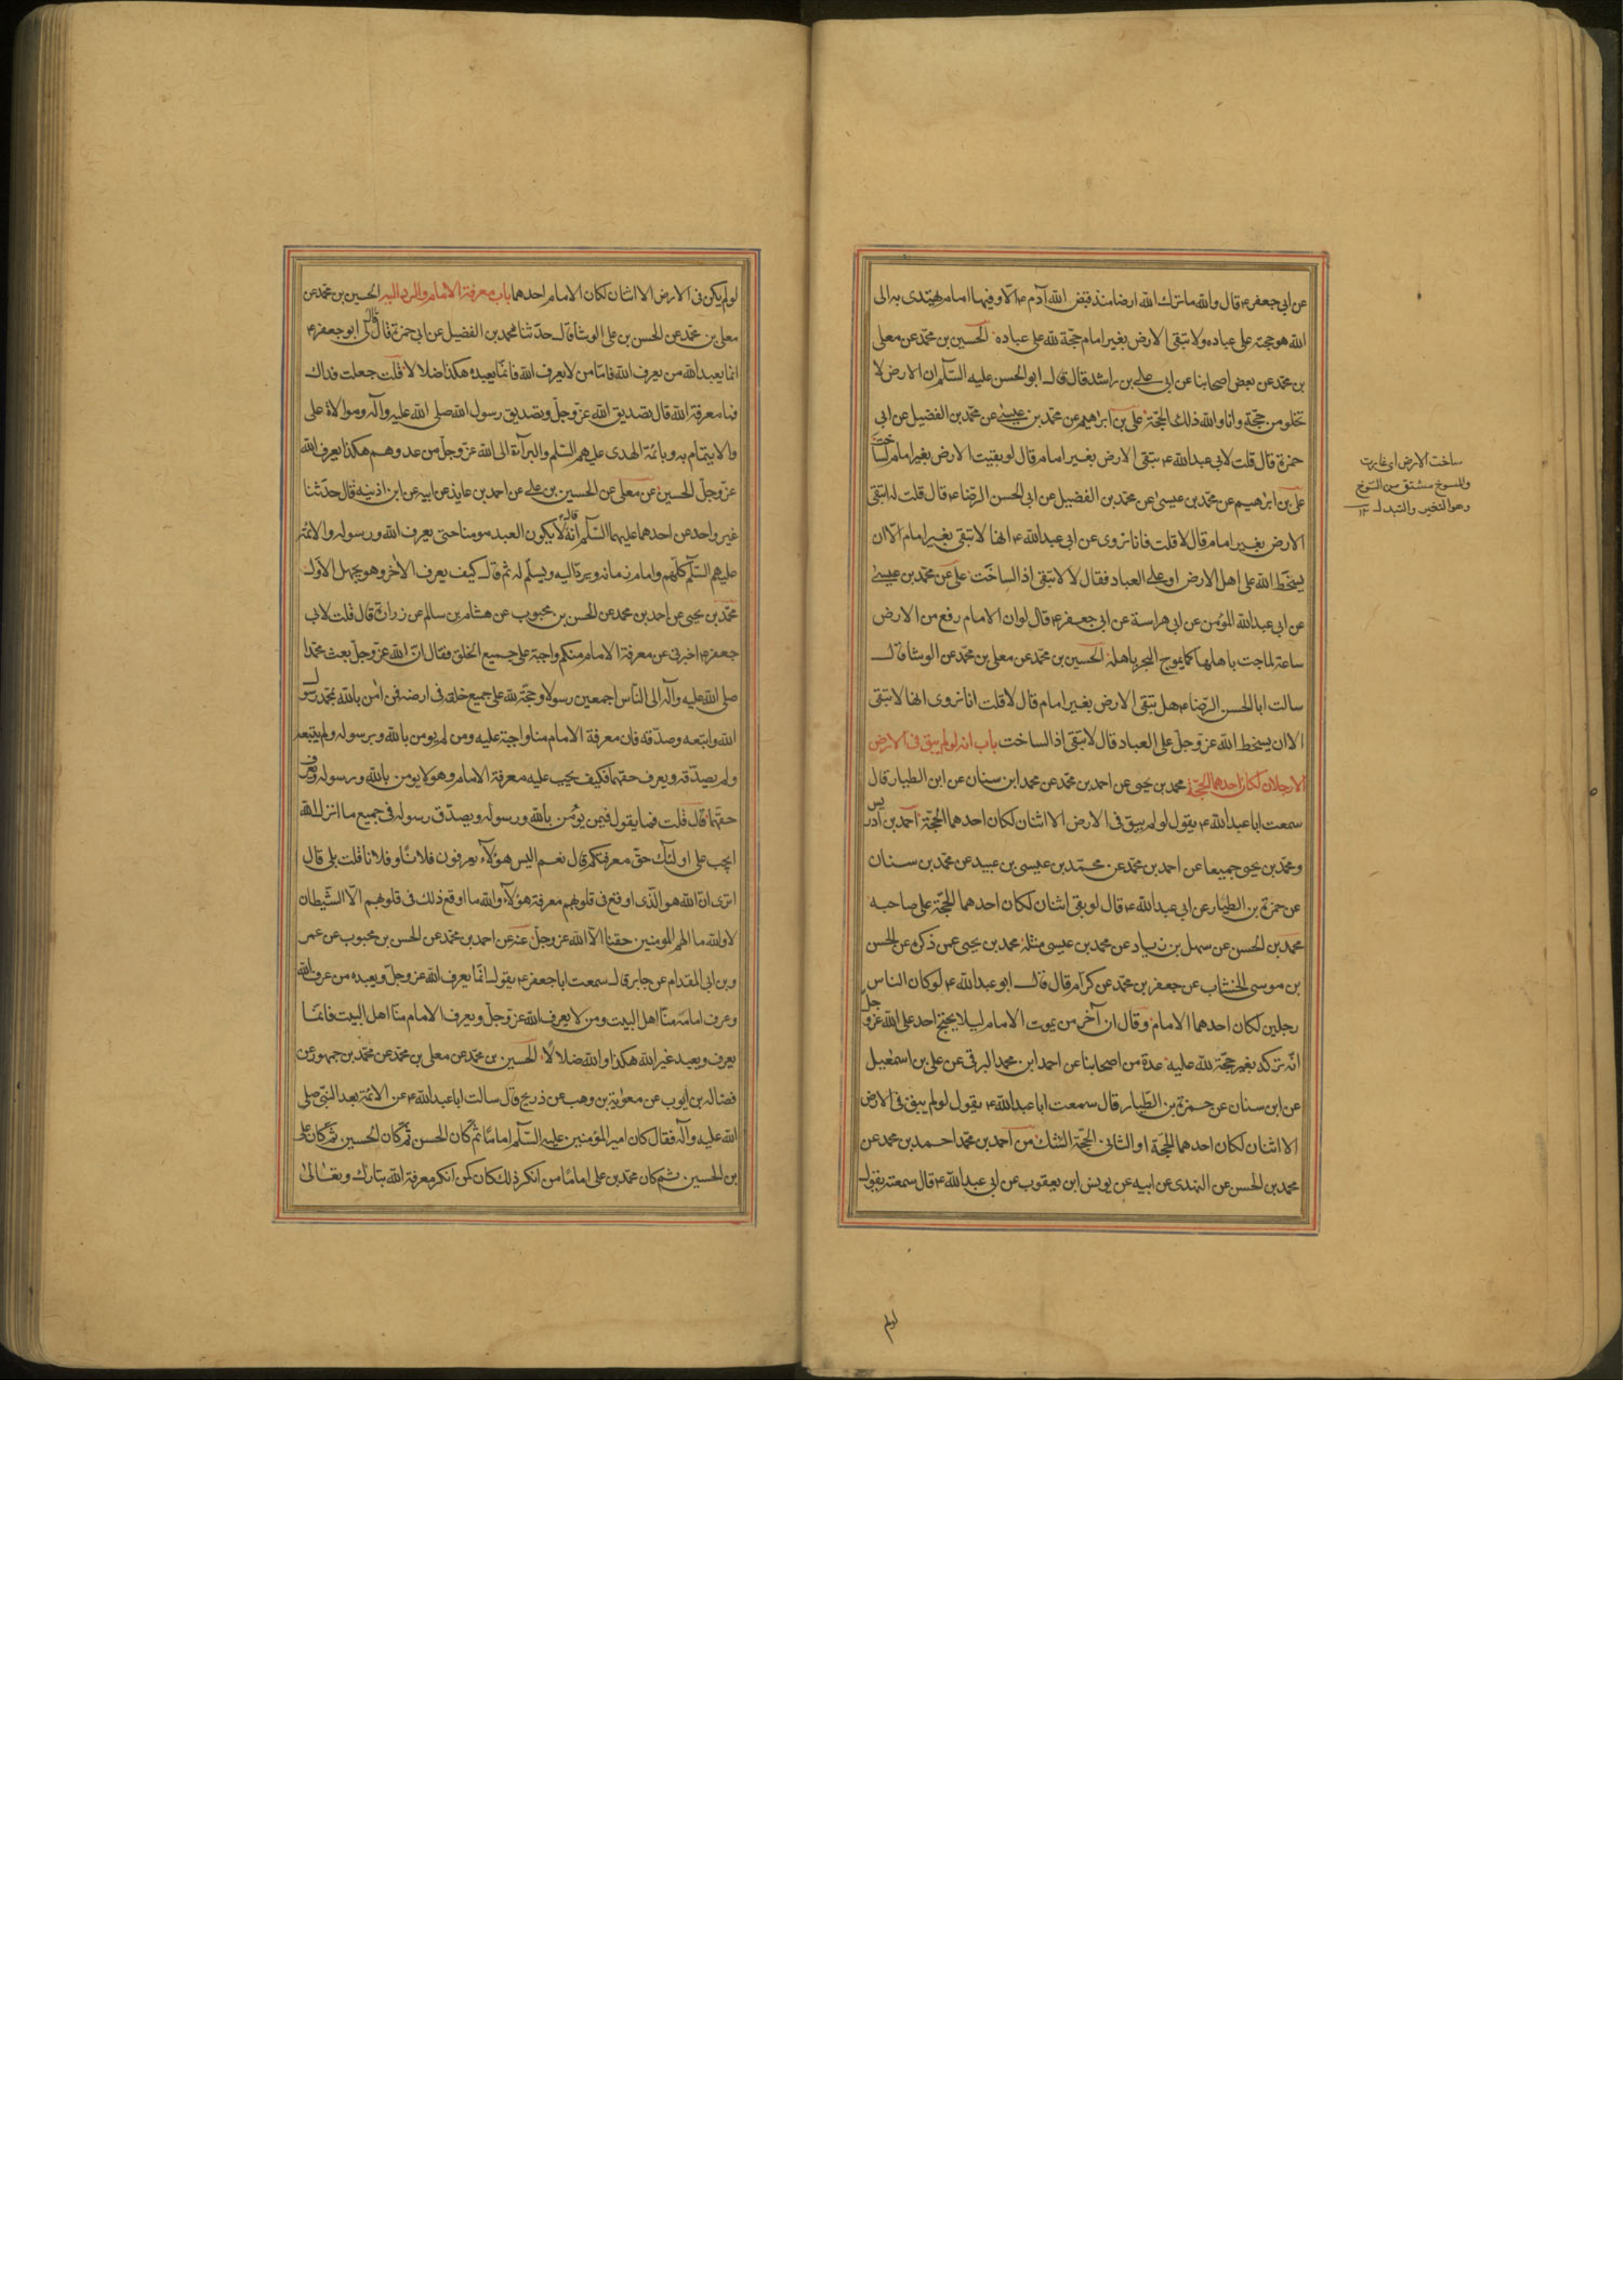 عن ابى جعفر ع قال والله ماترك الله ارضا منذ قبض الله آدم ع الا وفيها امام يهتدى به الى
الله هو حجته على عباده ولا تبقى الارض بغير امام حجّة لله على عباده الحسين بن محمّد عن معلى
بن محمّد عن بعض اصحابنا عن ابى على بن راشد قال قال ابو الحسن عليه السّلم ان الارض لا
تخلو من حجّة وانا والله ذلك الحجّة على بن ابرٰهيم عن محمّد بن عيسى عن محمّد بن الفضيل عن ابى
حمزة قال قلت لابى عبدالله ع تبقى الارض بغير امام قال لو بقيت الارض بغير امام لساخت
على بن ابرٰهيم عن محمّد بن عيسىٰ عن محمّد بن الفضيل عن ابى الحسن الرّضا ع قال قلت له اتبقى
الارض بغير امام قال لا قلت فانا نروى عن ابى عبدالله ع انها لا تبقى بغير امام الّا ان
يسخط الله على اهل الارض او على العباد فقال لا لا تبقى اذ الساخت على عن محمّد بن عيسىٰ
عن ابى عبدالله المؤمن عن ابى هراسة عن ابى جعفر ع قال لو ان الامام رفع من الارض
ساعة لماجت باهلها كما يموج البحر باهله الحسين بن محمّد عن معلى بن محمّد عن الوشا قال
سالت ابا الحسن الرّضا ع هل تبقى الارض بغير امام قال لا قلت انا نروى انها لا تبقى
الا ان يسخط الله عزّ وجلّ على العباد قال لا تبقى اذ الساخت باب انه لو لم يبق فى الارض
الا رجلان لكان احدهما الحجّة محمد بن يحيى عن احمد بن محمّد عن محمد ابن سنان عن ابن الطيار قال
سمعت ابا عبدالله ع يقول لو لم يبق فى الارض الا اثنان لكان احدهما الحجّة احمد بن ادريس
ومحمّد بن يحيى جميعا عن احمد بن محمّد عن محمّد بن عيسى بن عبيد عن محمّد بن سنان
عن حمزة بن الطيّار عن ابى عبدالله ع قال لو بقى اثنان لكان احدهما الحجّة على صاحبه
محمد بن الحسن عن سهل بن زياد عن محمد بن عيسى مثله محمد بن يحيى عمن ذكره عن الحسن
بن موسى الخشاب عن جعفر بن محمّد عن كرّام قال قال ابو عبدالله ع لو كان الناس
رجلين لكان احدهما الامام وقال ان آخر من يموت الامام ليلا يحتج احد على الله عزّ وجلّ
انّه تركه بغير حجّة لله عليه عدة من اصحابنا عن احمد ابن محمد البرقى عن على بن اسمٰعيل
عن ابن سنان عن حمزة بن الطّيار قال سمعت ابا عبدالله ع يقول لو لم يبق فى الارض
الا اثنان لكان احدهما الحجّة او الثانى الحجّة الشك من احمد بن محمّد احمد بن محمد عن
محمد بن الحسن عن النهدى عن ابيه عن يونس ابن يعقوب عن ابى عبدالله ع قال سمعته يقول
ساخت الارض اى غارت
والمسوخ مشتق من السّوخ
وهو التغير والتبدل ١٢
لولم
لو لم يكن فى الارض الا اثنان لكان الامام احدهما باب معرفة الامام والرد اليه الحسين بن محمّد عن
معلى بن محمّد عن الحسن بن على الوشا قال حدّثنا محمد بن الفضيل عن ابى حمزة قال قال لى ابو جعفر ع
انما يعبد الله من يعرف الله فامّا من لا يعرف الله فانّما يعبده هكذا ضلالا قلت جعلت فداك
فما معرفة الله قال تصديق الله عزّ وجلّ وتصديق رسول الله صلى الله عليه وآله وموالاة على
والايتمام به وبائمّة الهدى عليهم السّلم والبرآءة الى الله عزّ وجلّ من عدوهم هكذا يعرف الله
عزّ وجلّ الحسين عن معلى عن الحسين بن على عن احمد بن عايذ عن ابيه عن ابن اذينه قال حدّثنا
غير واحد عن احدهما عليهما السّلم انّه قال لا يكون العبد مومنا حتى يعرف الله ورسوله والائمّة
عليهم السّلم كلّهم وامام زمانه ويردّ اليه ويسلّم له ثم قال كيف يعرف الآخر وهو يجهل الاوّل
محمّد بن يحيى عن احمد بن محمد عن الحسن بن محبوب عن هشام بن سالم عن زرارة قال قلت لابى
جعفر ع اخبرنى عن معرفة الامام منكم واجبة على جميع الخلق فقال انّ الله عزّ وجلّ بعث محمّدا
صلى الله عليه وآله الى النّاس اجمعين رسولا وحجّة لله على جميع خلقه فى ارضه فمن اٰمن بالله بمحمّد رسول
الله واتبعه وصدّقه فان معرفة الامام منا واجبة عليه ومن لم يومن بالله وبرسوله ولم يتبعه
ولم يصدّقه ويعرف حقهما فكيف يجب عليه معرفة الامام وهو لا يومن بالله ورسوله ويعرف
حقهما قال قلت فما يقول فيمن يؤمن بالله ورسوله ويصدّق رسوله فى جميع ما انزل الله
ايجب على اولئك حقّ معرفتكم قال نعم اليس هؤلآء يعرفون فلانًا وفلانا قلت بلى قال
اترى انّ الله هو الّذى اوقع فى قلوبهم معرفة هؤلآء والله ما اوقع ذلك فى قلوبهم الّا الشّيطان
لا والله ما الهم المومنين حقنا الّا الله عزّ وجلّ عنه عن احمد بن محمّد عن الحسن بن محبوب عن عمر
وبن ابى المقدام عن جابر قال سمعت ابا جعفر ع يقول انّما يعرف الله عزّ وجلّ ويعبده من عرف الله
وعرف امامه منّا اهل البيت ومن لا يعرف الله عزّ وجلّ ويعرف الامام منّا اهل البيت فانمّا
يعرف ويعبد غير الله هكذا والله ضلالًا الحسين بن محمّد عن معلى بن محمّد عن محمّد بن جمهور عن
فضاله بن ايوب عن معٰوية بن وهب عن ذريح قال سالت ابا عبدالله ع عن الائمّة بعد النّبى صلى
الله عليه وآله فقال كان امير المؤمنين عليه السّلم امامًا ثم كان الحسن ثم كان الحسين ثم كان على
بن الحسين ثم كان محمّد بن على امامًا من انكر ذلك كان كمن انكر معرفة الله تبارك وتعالىٰ